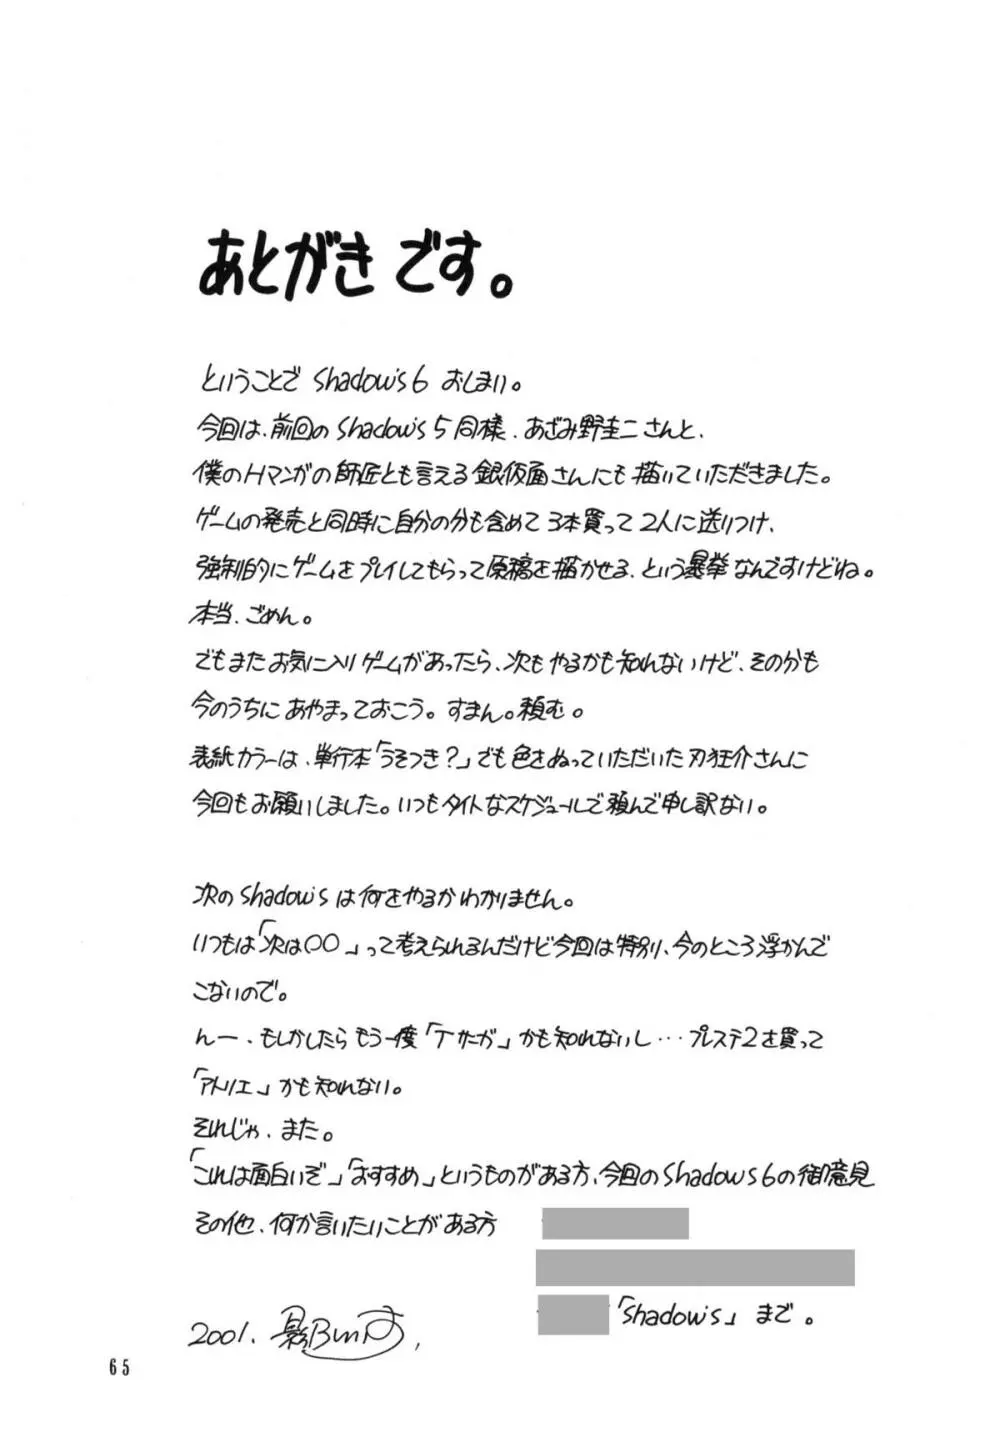 あとがきです。
ということで Shadow's 6 おしまい。
今回は、前回のShadow's 5 同様、あざみ野圭二さんと、
僕のHマンガの師匠とも言える銀仮面さんにも描いていただきました。
ゲームの発売と同時に自分の分も含めて3本買って2人に送りつけ、
強制的にゲームをプレイしてもらって原稿を描かせる、という暴挙なんですけどね。
本当、ごめん。
でもまたお気に入りゲームがあったら、次もやるかも知れないけど、その分も
今のうちにあやまっておこう。すまん。頼む。
表紙カラーは、単行本「うそつき?」でも色をぬっていただいた刃狂介さんに
今回もお願いしました。いつもタイトなスケジュールで頼んで申し訳ない。
次のShadow'sは何をやるかわかりません。
いつもは「次は○○」って考えられるんだけど今回は特別、今のところ浮かんで
こないので。
んー、もしかしたらもう一度「Tカーガ」かも知れないし…プレステ2を買って
「アトリエ」かも知れない。
それじゃ、また。
「これは面白いぞ」「おすすめ」というものがある方、今回のShadow's 6の御意見
その他、何か言いたいことがある方
「Shadow's」まで。
2001. 影
65